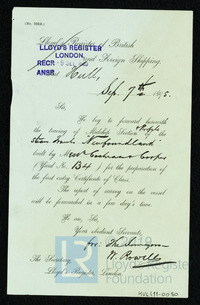 Lloyd's Register of British
and Foreign Shipping,
LLOYD'S REGISTER
LONDON.
RECD 9
ANSD
Hull,
Sep. 7th 1895.
Sir,
We beg to forward herewith
the tracing of Midship Section & Profile
Steam "Newfoundland"
built by Messrs Cochrane & Cooper
(Yard No. 134) for the preparation
of the first entry Certificate of Class.
The report of survey on the vessel
will be forwarded in a few day's time.
We are, Sir,
Your obedient Servants,
for
W. Powell
The Secretary,
Lloyd's Register, London.
Lloyd's Register
Foundation
HUL199-0080